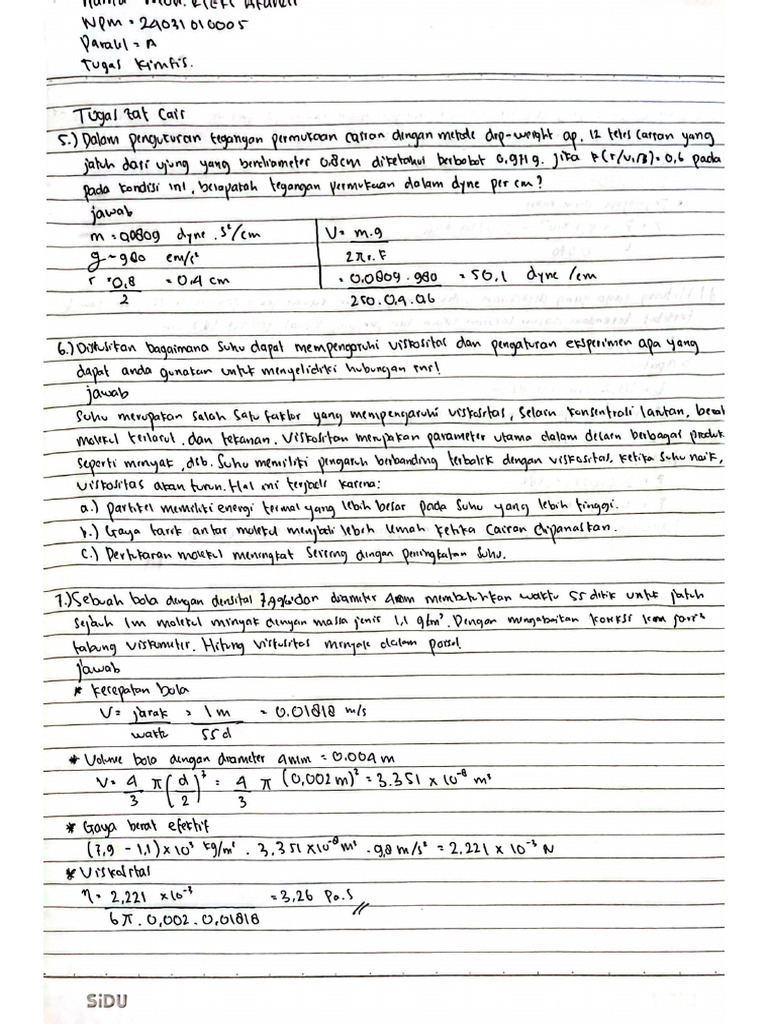 NPM = 24031010005
Paralel = A
Tugas Kimfis.
Tugas zat Cair
5.) Dalam pengukuran tegangan permukaan cairan dengan metode drop-weight ap. 12 tetes cairan yang
jatuh dari ujung yang berdiameter 0.8cm diketahui berbobot 0.971 g. Jika F(r/V1/3) = 0,6 pada
pada kondisi ini, berapakah tegangan permukaan dalam dyne per cm?
jawab
m = 0,0809 dyne . s²/cm
g = 980 cm/s²
r = 0.8 / 2 = 0.4 cm
V = m.g / 2πr.F
= 0.0809 . 980 / 250.0,4.0,6 = 50,1 dyne /cm
6.) Diskusikan bagaimana suhu dapat mempengaruhi viskositas dan pengaturan eksperimen apa yang
dapat anda gunakan untuk menyelidiki hubungan ini!
jawab
Suhu merupakan salah satu faktor yang mempengaruhi viskositas, selain konsentrasi larutan, berat
molekul terlarut, dan tekanan. Viskositas merupakan parameter utama dalam desain berbagai produk
seperti minyak, dsb. Suhu memiliki pengaruh berbanding terbalik dengan viskositas, ketika suhu naik,
viskositas akan turun. Hal ini terjadi karena:
a.) partikel memiliki energi termal yang lebih besar pada suhu yang lebih tinggi.
b.) Gaya tarik antar molekul menjadi lebih lemah ketika cairan dipanaskan.
c.) Pertukaran molekul meningkat seiring dengan peningkatan suhu.
7.) Sebuah bola dengan densitas 7,9 dan diameter 4mm membutuhkan waktu 55 detik untuk jatuh
sejauh 1m molekul minyak dengan massa jenis 1,1 g/cm³. Dengan mengabaikan koreksi
tabung viskometer. Hitung viskositas minyak dalam pascal.
jawab
* Kecepatan bola
V = jarak / waktu = 1 m / 55 d = 0.01818 m/s
* Volume bola dengan diameter 4mm = 0.004 m
V = 4/3 π (d/2)³ = 4/3 π (0,002 m)³ = 3.351 × 10⁻⁸ m³
* Gaya berat efektif
(7,9 - 1,1) × 10³ kg/m³ . 3,351 × 10⁻⁸ m³ . 9,8 m/s² = 2,221 × 10⁻³ N
* Viskositas
η = 2,221 × 10⁻³ / 6π . 0,002 . 0,01818 = 3,26 Pa.S
SiDU